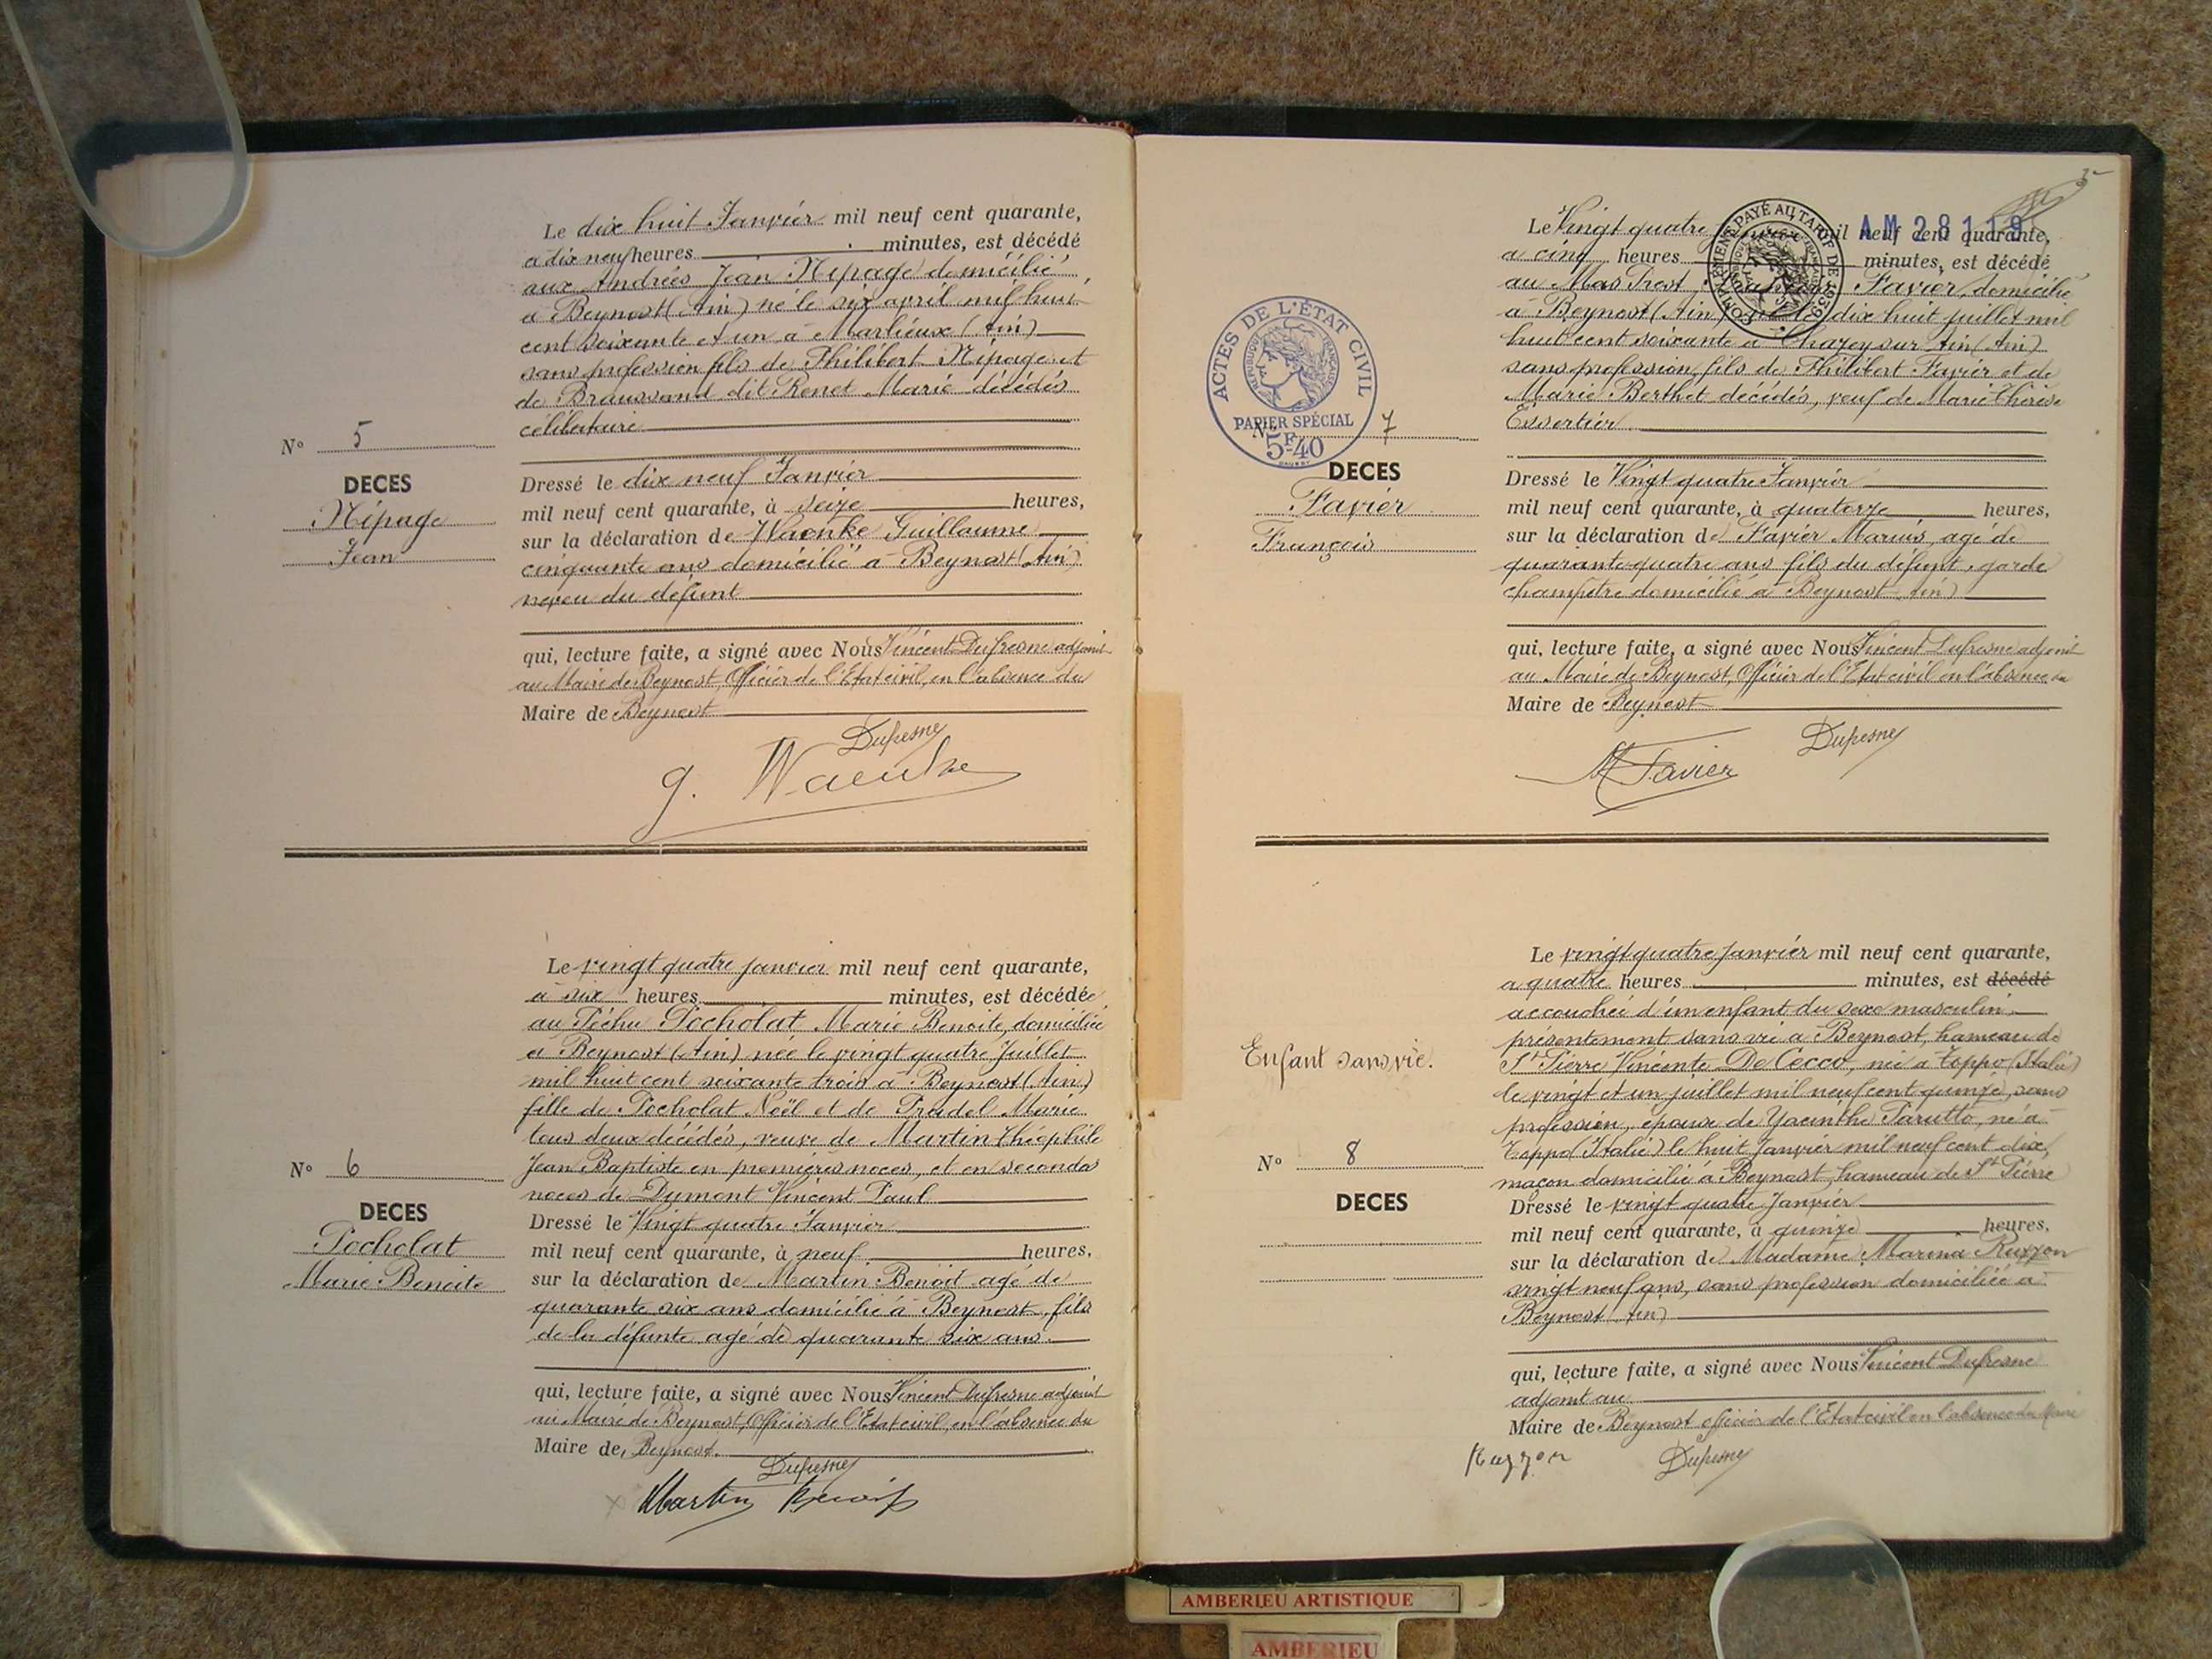 Le dix huit Janvier mil neuf cent quarante,
a dix neuf heures minutes, est décédé
aux Andrées Jean Nipage domicilié
a Beynost (Ain) né le six avril mil huit
cent soixante et un a Marlieux (Ain)
sans profession fils de Philibert Nipage et
de Braussand dit Renet Marie décédés
célibataire
N° 5
DECES
Nipage
Jean
Dressé le dix neuf Janvier
mil neuf cent quarante, à seize heures,
sur la déclaration de Waenke Guillaume
cinquante ans domicilié a Beynost (Ain)
neveu du défunt
qui, lecture faite, a signé avec Nous Vincent Dufresne adjoint
au Maire de Beynost, Officier de l'Etat civil, en l'absence du
Maire de Beynost
Dufresne
g. Waenke
Le vingt quatre janvier mil neuf cent quarante,
a six heures minutes, est décédée
au Péchu Pocholat Marie Benoite, domiciliée
a Beynost (Ain) née le vingt quatre Juillet
mil huit cent soixante trois a Beynost (Ain)
fille de Pocholat Noël et de Pradel Marie
tous deux décédés, veuve de Martin Théophile
Jean Baptiste en premières noces, et en secondes
noces de Dumont Vincent Paul
N° 6
DECES
Pocholat
Marie Benoite
Dressé le Vingt quatre Janvier
mil neuf cent quarante, à neuf heures,
sur la déclaration de Martin Benoit agé de
quarante six ans domicilié à Beynost, fils
de la défunte agé de quarante six ans
qui, lecture faite, a signé avec Nous Vincent Dufresne adjoint
au Maire de Beynost, Officier de l'Etat civil, en l'absence du
Maire de Beynost.
Dufresne
Martin Benoit
5
AM 28119
COMPLÉMENT PAYÉ AU TARIF DE 1939
Le Vingt quatre mil neuf cent quarante,
a cinq heures minutes, est décédé
au Mas Prost, Favier, domicilié
à Beynost (Ain) dix huit juillet mil
huit cent soixante a Chazey sur Ain (Ain)
sans profession, fils de Philibert Favier et de
Marie Berthet décédés, veuf de Marie Thérèse
Essertier
ACTES DE L'ÉTAT CIVIL
RÉPUBLIQUE FRANÇAISE
PAPIER SPÉCIAL
5F40
N° 7
DECES
Favier
François
Dressé le Vingt quatre Janvier
mil neuf cent quarante, à quatorze heures,
sur la déclaration de Favier Marius, agé de
quarante quatre ans fils du défunt, garde
champêtre domicilié a Beynost Ain)
qui, lecture faite, a signé avec Nous Vincent Dufresne adjoint
au Maire de Beynost, Officier de l'Etat civil en l'absence du
Maire de Beynost
Dufresne
M Favier
Le vingt quatre janvier mil neuf cent quarante,
a quatre heures minutes, est décédé
accouchée d'un enfant du sexe masculin
présentement sans vie a Beynost, hameau de
St Pierre Vincente De Cecco, née a Toppo (Italie)
le vingt et un juillet mil neuf cent quinze, sans
profession, épouse de Yacinthe Parutto, né a
Toppo (Italie) le huit Janvier mil neuf cent dix,
maçon domicilié a Beynost, hameau de St Pierre
Enfant sans vie.
N° 8
DECES
Dressé le vingt quatre Janvier
mil neuf cent quarante, à quinze heures,
sur la déclaration de Madame Marina Ruzzon
vingt neuf ans, sans profession domiciliée a
Beynost (Ain)
qui, lecture faite, a signé avec Nous Vincent Dufresne
adjoint au
Maire de Beynost officier de l'Etat civil en l'absence du Maire
Ruzzon
Dufresne
AMBERIEU ARTISTIQUE
AMBERIEU